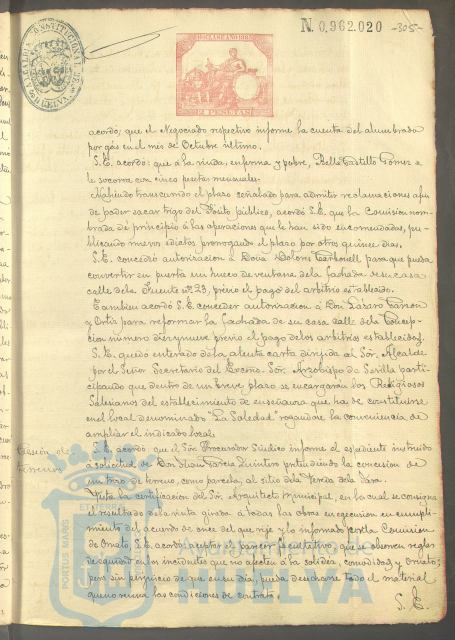 N. 0,962.020 -305-
ALCALDIA CONSTITUCIONAL DE HUELVA
2 PESETAS
acordó; que el Negociado respectivo informe la cuenta del alumbrado
por gas en el mes de Octubre último.
S. E. acordó: que á la viuda, enferma y pobre, Bella Castillo Gomez se
le socorra con cinco pesetas mensuales.
Habiendo transcurrido el plazo señalado para admitir reclamaciones a fin
de poder sacar trigo del Pósito público, acordó S. E. que la Comision nom-
brada dé principio á las operaciones que le han sido encomendadas, pu-
blicando nuevos edictos prorrogando el plazo por otros quince dias.
S. E. concedió autorizacion á Doña Dolores Carbonell para que pueda
convertir en puerta un hueco de ventana de la fachada de su casa
calle de la Fuente nº 23, previo el pago del arbitrio establecido.
Tambien acordó S. E. conceder autorizacion á Don Lázaro
y Ortiz para reformar la fachada de su casa calle de la Concep-
cion número diez y nueve previo el pago de los arbitrios establecidos.
S. E. quedó enterado de la atenta carta dirijida al Sór. Alcalde
por el Señor Secretario del Excmo. Sór. Arzobispo de Sevilla parti-
cipando que dentro de un breve plazo se encargarán los Religiosos
Salesianos del establecimiento de enseñanza que ha de constituirse
en el local denominado "La Soledad" rogando la conveniencia de
ampliar el indicado local.
Cesion de terrenos
S. E. acordó que el Sór. Procurador Síndico informe el espediente instruido
á solicitud de Don Juan Garcia Quintero pretendiendo la concesion de
un trozo de terreno, como parcela, al sitio de la Vereda de la
Vista la certificacion del Sór. Arquitecto Municipal, en la cual se consigna
el resultado de la visita girada á todas las obras en ejecucion en cumpli-
miento del acuerdo de once del que rije y lo informado por la Comision
de Ornato, S. E. acordó, aceptar el parecer facultativo; que se observen reglas
de equidad en los incidentes que no afecten á la solidez, comodidad y ornato;
pero sin perjuicio de que en su dia, pueda desecharse todo el material
que no reuna las condiciones de contrata.
S. E.
PORTUS MARIS
Ayuntamiento de
HUELVA